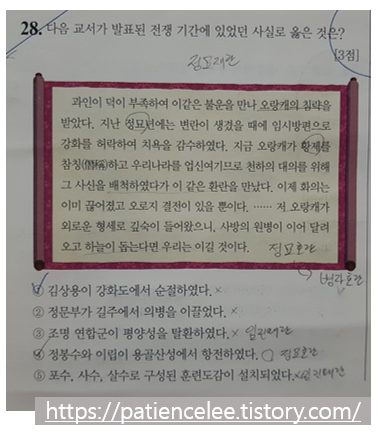 28. 다음 교서가 발표된 전쟁 기간에 있었던 사실로 옳은 것은?
[3점]
정묘호란
과인이 덕이 부족하여 이같은 불운을 만나 오랑캐의 침략을
받았다. 지난 정묘년에는 변란이 생겼을 때에 임시방편으로
강화를 허락하여 치욕을 감수하였다. 지금 오랑캐가 황제를
참칭(僭稱)하고 우리나라를 업신여기므로 천하의 대의를 위해
그 사신을 배척하였다가 이 같은 환란을 만났다. 이제 화의는
이미 끊어졌고 오로지 결전이 있을 뿐이다. …… 저 오랑캐가
외로운 형세로 깊숙이 들어왔으니, 사방의 원병이 이어 달려
오고 하늘이 돕는다면 우리는 이길 것이다.
정묘호란
병자호란
① 김상용이 강화도에서 순절하였다. ×
② 정문부가 길주에서 의병을 이끌었다. ×
③ 조명 연합군이 평양성을 탈환하였다. × 임진왜란
④ 정봉수와 이립이 용골산성에서 항전하였다. ○ 정묘호란
⑤ 포수, 사수, 살수로 구성된 훈련도감이 설치되었다. × 임진왜란
https://patiencelee.tistory.com/